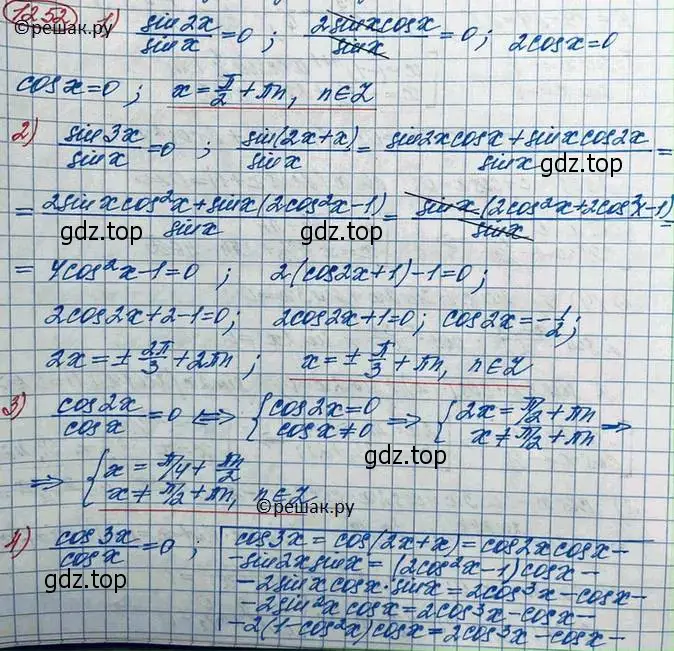 1252 1) sin2x/sinx = 0 ; 2sinxcosx/sinx = 0; 2cosx=0
©решак.ру
cosx=0 ; x = π/2 + πn, n∈Z
2) sin3x/sinx = 0 ; sin(2x+x)/sinx = sin2xcosx+sinxcos2x/sinx =
gdz.top
= 2sinxcos²x+sinx(2cos²x-1)/sinx = sinx(2cos²x+2cos²x-1)/sinx =
gdz.top gdz.top
= 4cos²x-1=0 ; 2(cos2x+1)-1=0;
2cos2x+2-1=0; 2cos2x+1=0; cos2x=-1/2;
2x=± 2π/3 +2πn ; x=± π/3 + πn, n∈Z
3) cos2x/cosx = 0 ⇔ { cos2x=0 cosx≠0 ⇒ { 2x=π/2+πn x≠π/2+πn ⇒
gdz.top
⇒ { x = π/4 + πn/2 x≠π/2+πn, n∈Z
©решак.ру
4) cos3x/cosx = 0 ; cos3x = cos(2x+x) = cos2xcosx-
-sin2xsinx = (2cos²x-1)cosx-
gdz.top
-2sinxcosx·sinx=2cos³x-cosx-
-2sin²xcosx=2cos³x-cosx-
-2(1-cos²x)cosx=2cos³x-cosx-